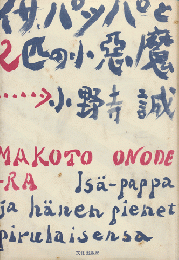 イサ・パッパと
2匹の小悪魔
小野寺誠
MAKOTO ONODE
-RA Isä-pappa
ja hänen pienet
pirulaisensa